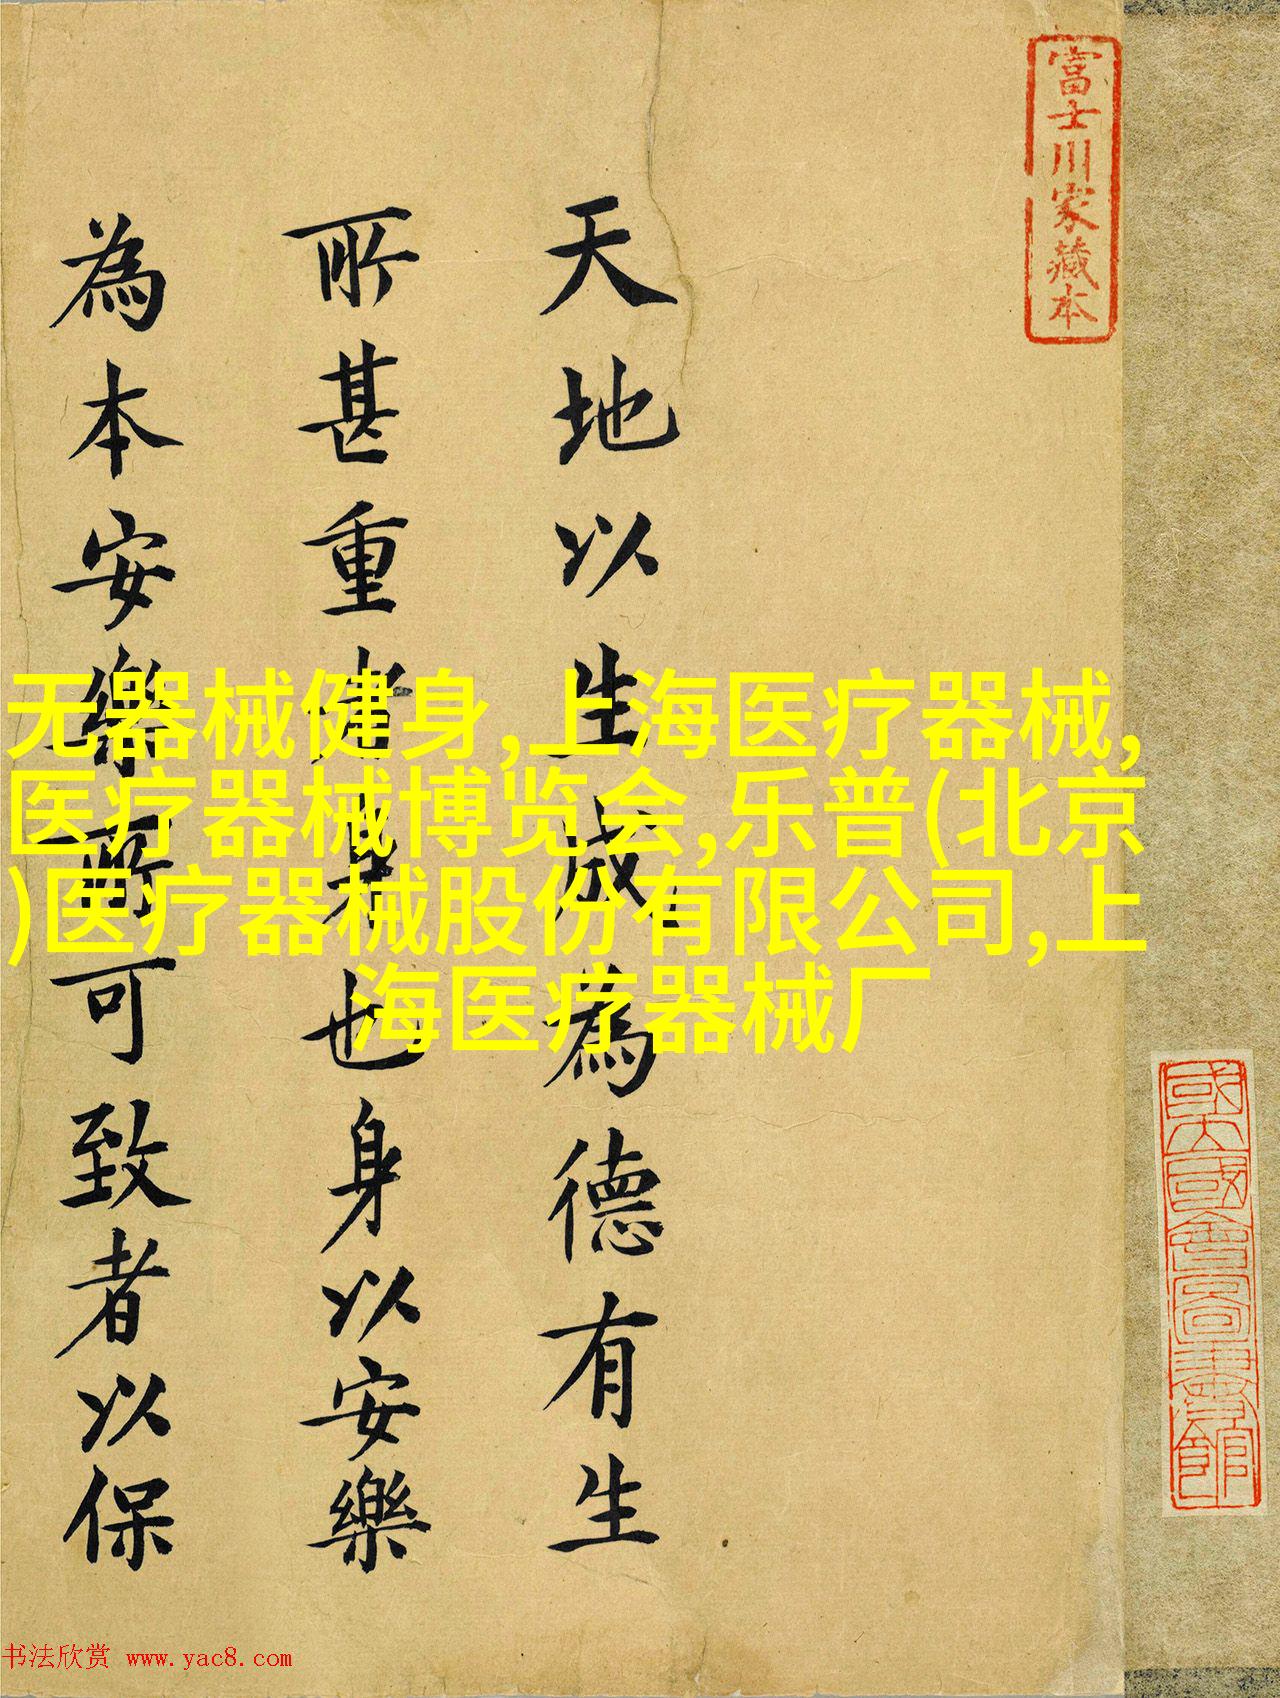 富士川家藏本
天地以生成為德有生
所甚重者身也身以安樂
為本安樂所可致者以保
无器械健身,上海医疗器械,
医疗器械博览会,乐普(北京
)医疗器械股份有限公司,上
海医疗器械厂
国立国会図書館
书法欣赏 www.yac8.com